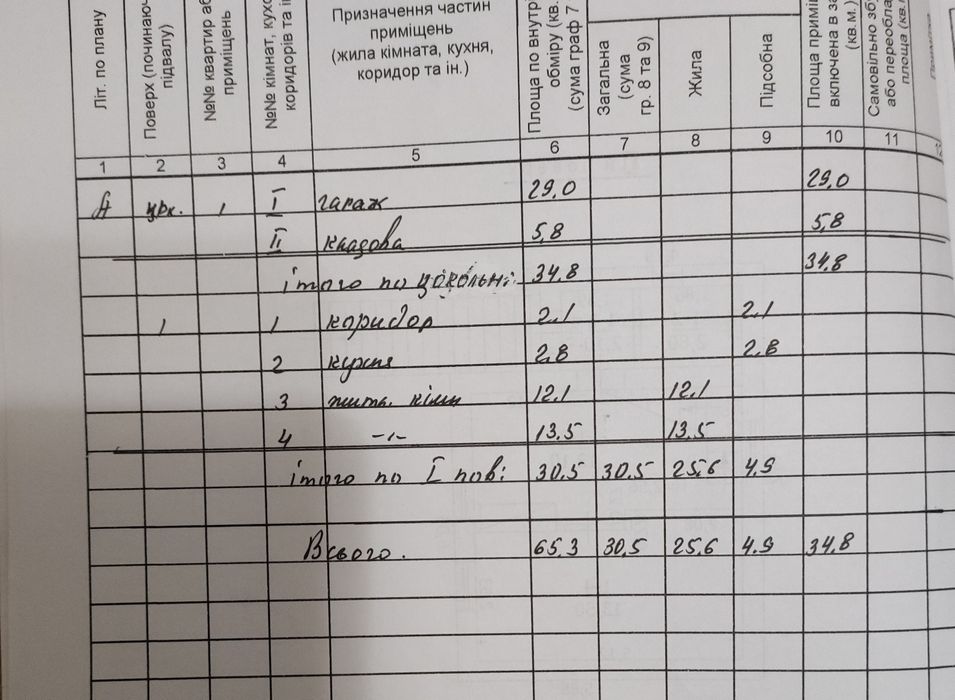 Літ. по плану
Поверх (починаюч
підвалу)
№№ квартир аб
приміщень
№№ кімнат, кухо
коридорів та і
Призначення частин
приміщень
(жила кімната, кухня,
коридор та ін.)
Площа по внутрі
обміру (кв.
(сума граф 7
Загальна
(сума
гр. 8 та 9)
Жила
Підсобна
Площа примі
включена в за
(кв.м.)
Самовільно збу
або переобла
площа (кв.
1 2 3 4 5 6 7 8 9 10 11
А цок. 1 I гараж 29,0 29,0
II кладова 5,8 5,8
ітого по цокольн: 34.8 34,8
1 1 коридор 2.1 2.1
2 кухня 2,8 2.8
3 житл. кімн 12.1 12.1
4 -"- 13.5 13.5
ітого по I пов: 30.5 30.5 25,6 4.9
Всього. 65.3 30,5 25.6 4.9 34.8